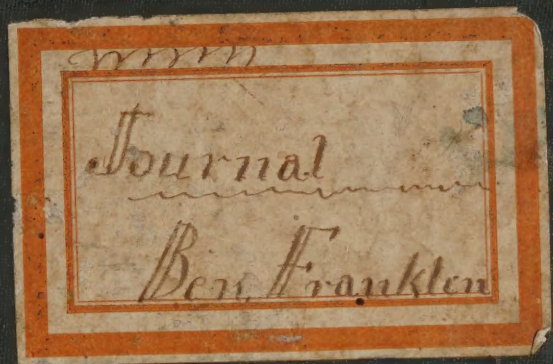 Journal
Ben, Franklen